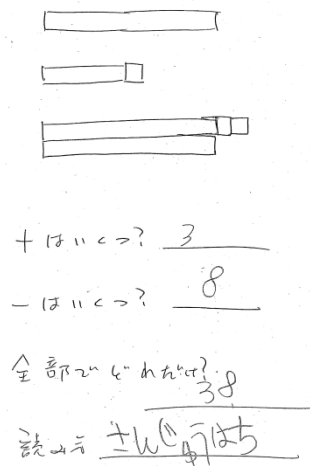 十はいくつ? 3
一はいくつ? 8
全部でどれだけ?
38
読み方 さんじゅうはち